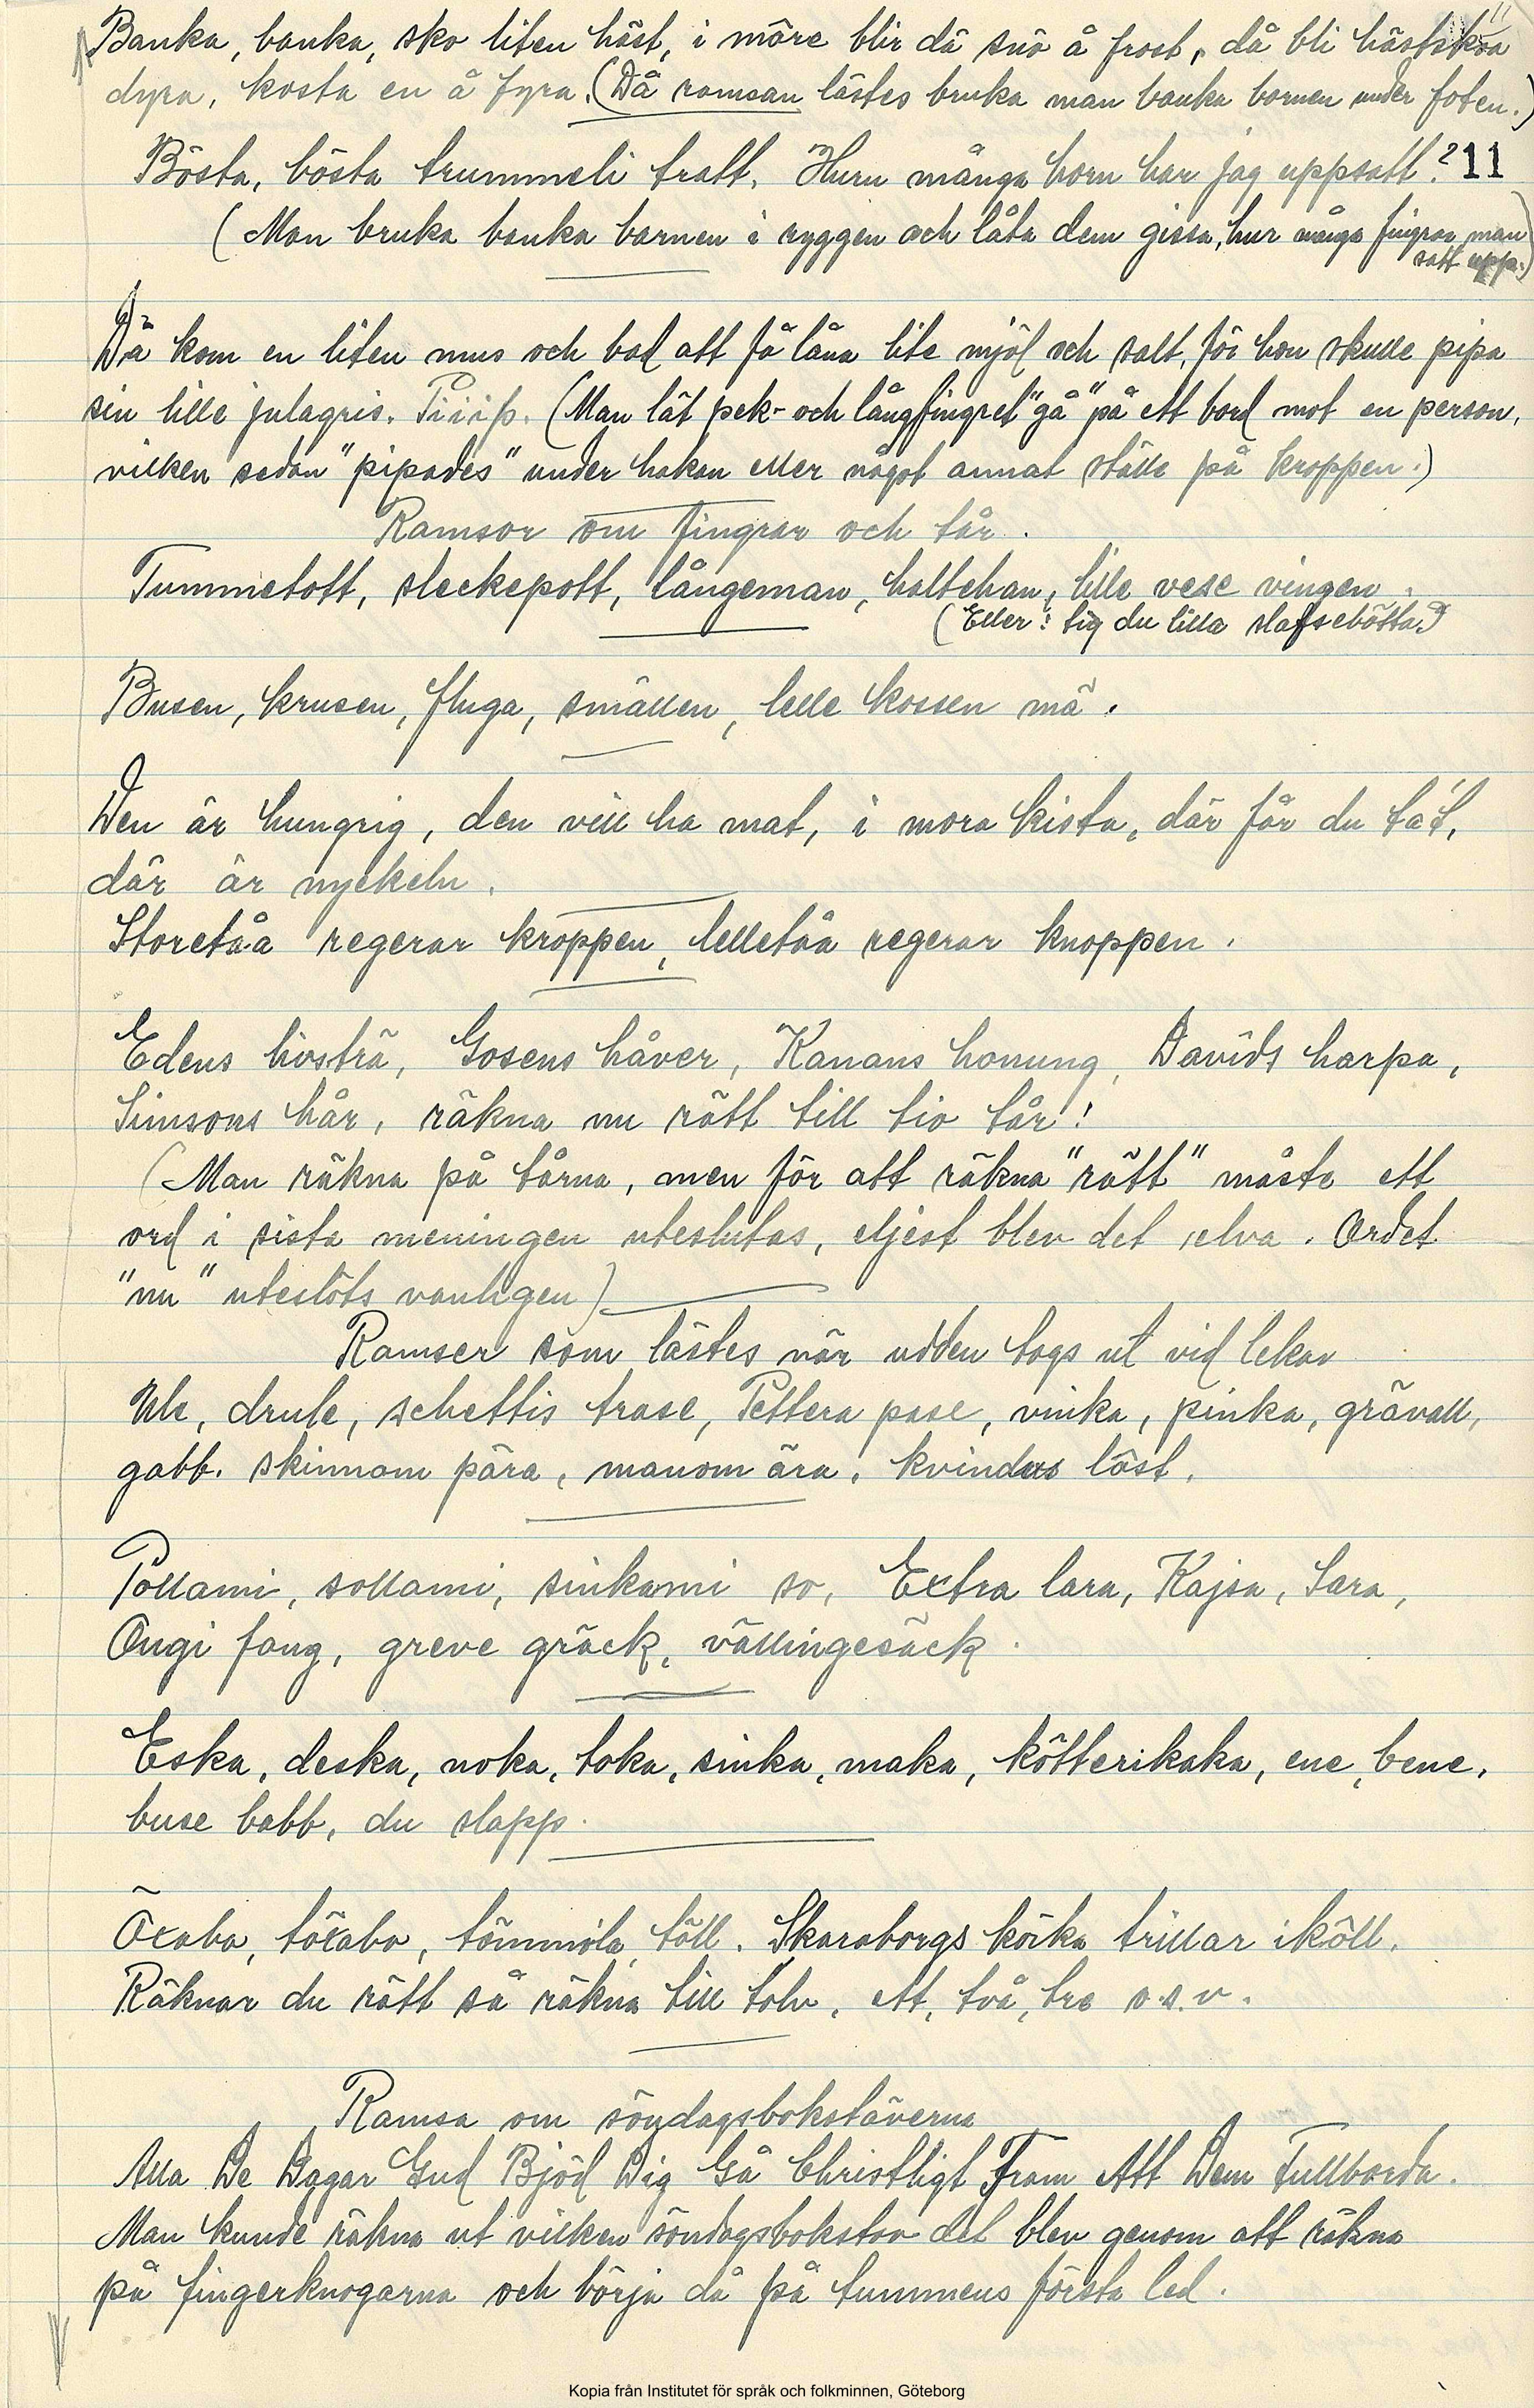 Banka, banka, sko liten häst, i möre blir dä snö å frost, då bli hästskoa
dyra, kosta en å fyra. (Då ramsan lästes bruka man banka barnen under foten.)
Bösta, bösta trummeli tratt. Huru många horn har jag uppsatt? 11
(Man bruka banka barnen i ryggen och låta dem gissa, hur många fingrar man
satt upp.)
Dä kom en liten mus och bad att få låna lite mjöl och salt, för hon skulle pipa
sin lille julagris. Piiip. (Man lät pek- och långfingret "gå" på ett bord mot en person,
vilken sedan "pipades" under hakan eller något annat ställe på kroppen.)
Ramsor om fingrar och tår.
Tummetott, sleckepott, långeman, haltehan, lille vese vingen.
(Eller: tig du lilla slafsebötta)
Busen, krusen, fluga, smällen, lelle kossen mä.
Den är hungrig, den vill ha mat, i mora kista, där får du ta't,
där är nyckeln.
Storetåa regerar kroppen, lelletåa regerar knoppen.
Edens livsträ, Gosens håver, Kanans honung, Davids harpa,
Simsons hår, räkna nu rätt till tio tår!
(Man räkna på tårna, men för att räkna "rätt" måste ett
ord i sista meningen uteslutas, eljest blev det elva. Ordet
"nu" uteslöts vanligen)
Ramser som lästes när udden togs ut vid lekar
Ule, drule, schettis trase, Pettera pase, vinka, pinka, grävall,
gabb. skinnom pära, manom ära, kvindus löst.
Pollami, sollami, sinkami so, Extra lara, Kajsa, Sara,
Ongi fong, greve gräck, vällingesäck.
Eska, deska, noka, toka, sinka, maka, kötterikaka, ene, bene,
buse babb, du slapp.
Öxabo, töxabo, tömmöla, töll. Skaraborgs körka trillar iköll.
Räknar du rätt så räkna till tolv, ett, två, tre o.s.v.
Ramsa om söndagsbokstäverna
Alla De Dagar Gud Bjöd Dig Gå Christligt Fram Att Dem Fullborda.
Man kunde räkna ut vilken söndagsbokstav det blev genom att räkna
på fingerknogarna och börja då på tummens första led.
Kopia från Institutet för språk och folkminnen, Göteborg